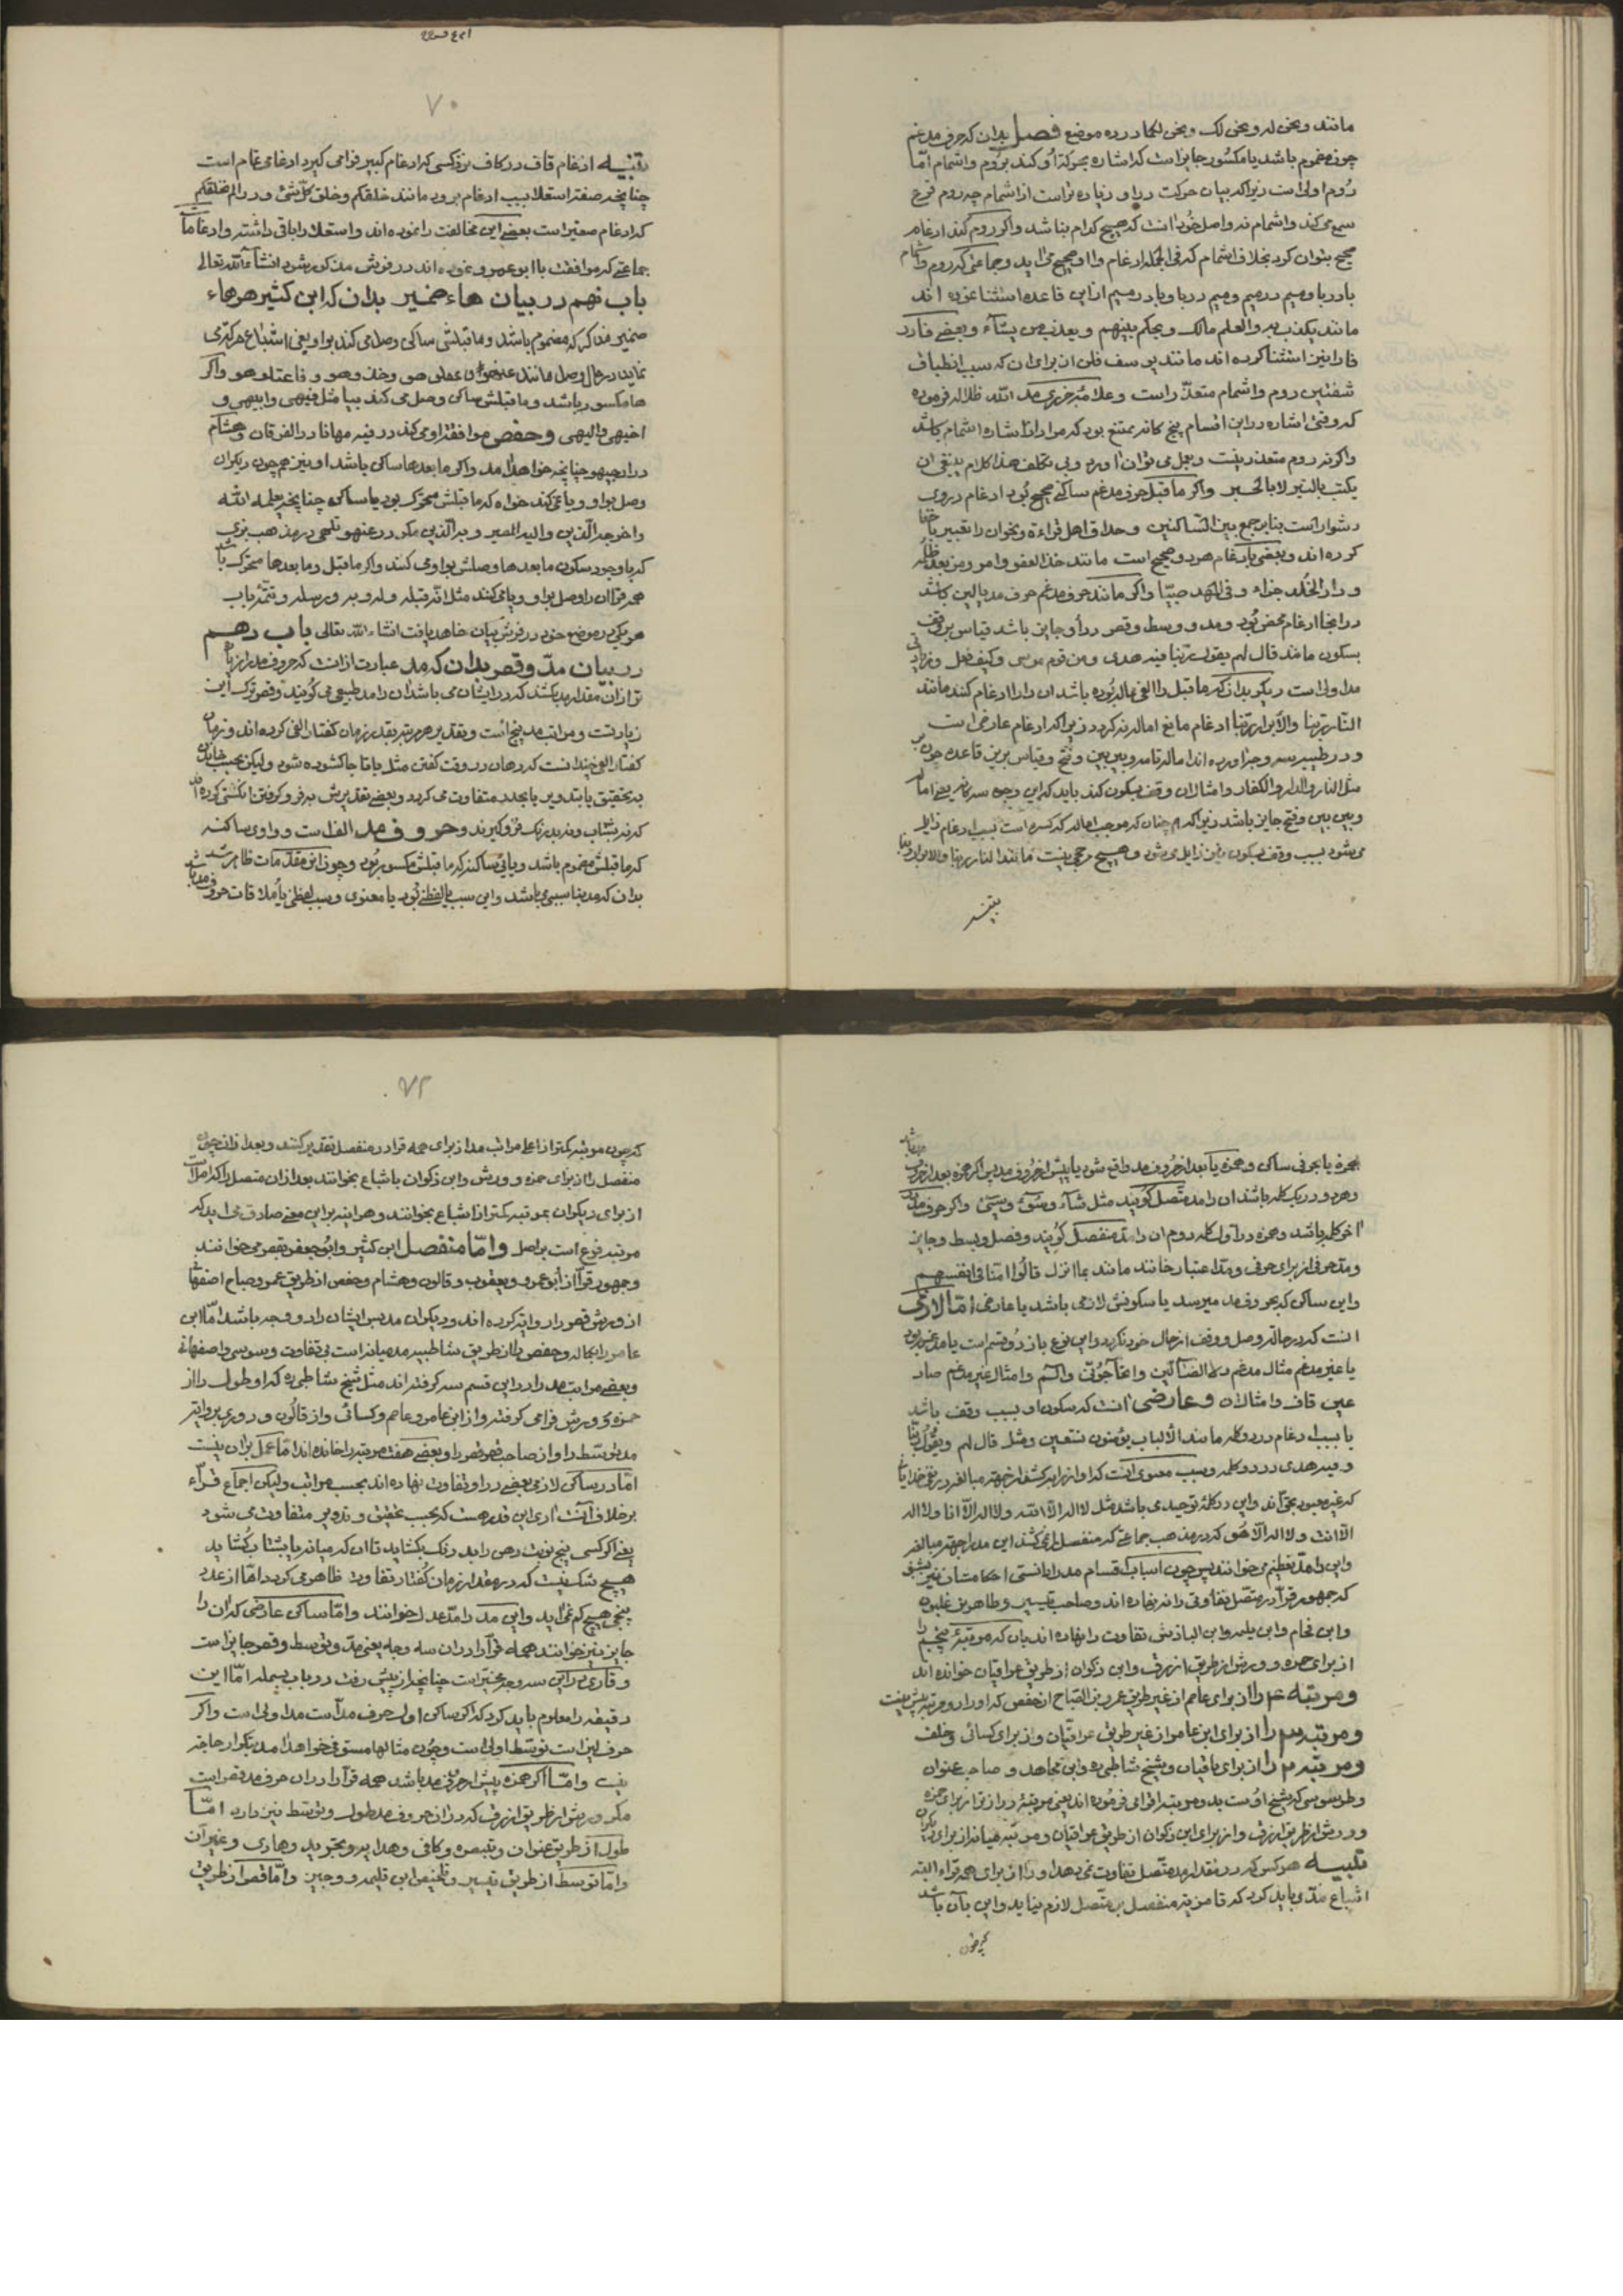 مانند ونحن له ونحن لک ونحن لکما در ده موضع فصل بدان که حرف مدغم
چون مضموم باشد یا مکسور جایز است که اشاره بحرکة او کنند بروم واشمام امّا
روم اولی است زیرا که بیان حرکت در او زیاده تر است از اشمام چه روم قرع
سمع می کند واشمام نه واصل خود انست که هیچ کدام نباشد واکر روم کند ادغام
صحیح نتوان کرد بخلاف اشمام که فی الجمله ادغام با او صحیح می اید وجماعتی که روم واشمام
با در با ومیم در میم ومیم در با وبا در میم از این قاعده استثنا نموده اند
مانند یکذب به والعلم مالک ویحکم بینهم ویعذب من یشآء وبعضی فا در
فا را نیز استثنا کرده اند مانند یوسف فلن از برای ان که سبب انطباق
شفتین روم واشمام متعذّر است وعلامه جزری مد الله ظلاله فرموده
که وقتی اشاره در این اقسام پنج کانه ممتنع بود که مراد از اشاره اشمام باشد
واکر نه روم متعذر نیست وبعمل می توان اورد وبی تکلف هذا کلام ینبغی ان
یکتب بالتبر لا بالحبر واکر ماقبل حرف مدغم ساکنی صحیح بود ادغام در وی
دشوار است بنابر جمع بین الساکنین وحذاق اهل قراءة ونحویان را تعبیر باخفا
کرده اند وبعضی بادغام هر دو صحیح است مانند خذ العفو وامر ومن بعد ظلمه
ودار الخلد جزاء وفی المهد صبیّا واکر مانند حرف مدغم حرف مد یا لین باشد
در اینجا ادغام محض بود ومد ووسط وقصر در او جایز باشد قیاس بر وقف
بسکون مانند قال لهم یقول ربّنا فیه هدی ومن قوم موسی وکیف فعل
مد اولی است دیکر بدان که ماقبل را الفی ممال بوده باشد ان را ادغام کنند مانند
النّار ربنا والأبرار ربّنا ادغام مانع اماله نه کردد زیرا که ادغام عارضی است
ودر طیبه سه وجه اورده اند اماله تامه وبین بین وفتح وقیاس بر این قاعده
مثل النار والدار والکفار وامثال ان وقف بسکون کند باید که این وجه سه کانه یعنی اماله
وبین بین وفتح جایز باشد زیرا که همچنان که موجب اماله که کسره است بسبب ادغام زایل
می شود بسبب وقف بسکون نیز زایل می شود وهیچ مرجحی نیست مانند النار ربنا والابرار ربنا
تنبیه
۷۰
تنبیه ادغام قاف در کاف نزد کسی که ادغام کبیر فرامی کیرد ادغامی تمام است
چنانچه صفة استعلا بسبب ادغام برود مانند خلقکم وخلق کلّ شئ ودر الم نخلقکم
که ادغام صغیر است بعضی این مخالفت را نموده اند واستعلا را باقی داشته وادغام
جماعتی که موافقت با ابو عمرو نموده اند در فرش مذکور شود انشآء الله تعالی
باب نهم در بیان هاء ضمیر بدان که ابن کثیر هر هاء
ضمیر مذکر که مضموم باشد وماقبلش ساکن وصل می کند بواو یعنی اشباع
نماید در حال وصل مانند عنهو وخذوهو وفاعتلوهو واکر
ها مکسور باشد وماقبلش ساکن وصل می کند بیا مثل فیهی وابیهی و
اخیهی والیهی وحفص موافقة او می کند در فیه مهانا در الفرقان وهشام
در ارجیهو چنانچه خواهد امد واکر ما بعد ها ساکن باشد او نیز همچون دیکران
وصل بواو ویا نمی کند خواه که ماقبلش متحرک بود یا ساکن چنانچه یعلمه الله
واخوجد الّذین والیه المصیر وبه الّذین مکر در عنهو تلهی در مذهب بزی
که با وجود سکون ما بعد ها وصلش بواو می کنند واکر ماقبل وما بعد ها متحرک باشد
همه قرّا ان را وصل بواو ویا می کنند مثل انّه قبله وله وبه ورسله
هر یکی در موضع خود در فرش بیان خاهد یافت انشاء الله تعالی باب دهم
در بیان مدّ وقصر بدان که مد عبارت از انست که حروف مد را زیاده
تر از ان مقدار مد بکشند که در ایشان می باشد ان را مد طبیعی می کویند وقصر ترک این
زیادتست ومراتب مد پنج است وتقدیر هر مرتبه بقدر زمان کفتار الفی کرده اند وزمان
کفتار الفی چندانست که دهان در وقت کفتن مثل با تا جا کشوده شود ولیکن بحسب خاندن
به تحقیق یا بتدویر یا بحدر متفاوت می کردد وبعضی تقدیرش به فرو کرفتن انکشتی کرده اند
که نه بشتاب ونه بدرنک فرو کیرند وحروف مد الف است وواوی ساکنه
که ماقبلش مضموم باشد ویائی ساکنه که ماقبلش مکسور بود وچون این مقدّمات ظاهر شد
بدان که مد بنا بسببی باشد واین سبب یا لفظی بود یا معنوی وسبب لفظی یا ملاقات حروف مد باشد
بهمزه یا بحرفی ساکن وهمزه یا بعد از حروف مد واقع شود یا پیش از حروف مد پس اکر همزه بعد از حرف
وهر دو در یک کلمه باشد ان را مد متّصل کویند مثل شآء وسوٓء وسیٓئ واکر حرف مد
اخر کلمه باشد وهمزه در اول کلمه دوم ان را مدّ منفصل کویند وفصل وبسط وجایز
ومد حرفی از برای حرفی ومدّ اعتبار خانند مانند بما انزل قالوا امنا فی انفسهم
واین ساکن که بحروف مد میرسد یا سکونش لازمی باشد یا عارضی امّا لازمی
انست که در حالة وصل ووقف از حال خود نکردد واین نوع باز دو قسم است یا مدغم بود
یا غیر مدغم مثال مدغم ولا الضآلّین واتحآجّونّی والٓم وامثال غیر مدغم صاد
عین قاف وامثال ان وعارضی انست که سکون او بسبب وقف باشد
یا بسبب ادغام در دو کلمه مانند الألباب یؤمنون نستعین ومثل قال لهم ویقول ربّنا
وفیه هدی در دو کلمه وسبب معنوی انست که او را از برای کشند از جهة مبالغه در نفی خدایان
که غیر معبود بحق اند واین در کلمهٔ توحید می باشد مثل لا اله الّا الله ولا اله الّا انا ولا اله
الّا انت ولا اله الّا هو که در مذهب جماعتی که منفصل را نمی کشند این مد را جهة مبالغه
واین را مدّ تعظیم می خوانند پس چون اسباب واقسام مد را دانستی احکامشان نیز بشنو
که جمهور قرّا در متصّل تفاوتی را نه نهاده اند وصاحب تیسیر وطاهر بن غلبون
وابن فحام وابن بلیمه وابن الباذش تفاوت را نهاده اند بان که مرتبهٔ پنجم را
از برای حمزه وورش از طریق ازرق وابن ذکوان از طریق عراقیان خوانده اند
ومرتبه ۴ را از برای عاصم از غیر طریق عمرو بن الصّباح از حفص که او را دو مرتبه پیش نیست
ومرتبه ۳ را از برای ابن عامر از غیر طریق عراقیّان واز برای کسائی وخلف
ومرتبه ۲ را از برای باقیان وشیخ شاطبی ره وابن مجاهد وصاحب عنوان
وطرسوسی که شیخ اوست بدو مرتبه اقوامی فرموده اند یعنی مرتبهٔ دراز تر از برای حمزه
وورش از طریق ازرق واز برای ابن ذکوان از طریق عراقیان ومرتبه میانه از برای دیکران
تنبیه هر کس که در مقدار مد متّصل تفاوت نمی نهد او را از برای همه قراء البته
اشباع مدّ می باید کرد که تا مزیة منفصل بر متّصل لازم نیاید واین بآن باشد
که چون
۷۲
که چون مرتبه کمتر از اعلی مراتب مد از برای همه قرا در منفصل تقدیر کنند وبعد از ان چون
منفصل را از برای حمزه وورش وابن ذکوان باشباع بخوانند بعد از ان متصل را که اصل است
از برای دیکران بمرتبه کمتر از اشباع بخوانند وهر اینه بر این معنی صادق می اید که
مرتبه فرع است بر اصل وامّا منفصل ابن کثیر وابو جعفر بقصر می خوانند
وجمهور قرّا از ابو عمرو ویعقوب وقالون وهشام وحفص از طریق عمرو صباح اصفهانی
از ورش قصر را روایة کرده اند ودیکران مد پس ایشان را دو وجه باشد امّا ابن
عامر را بکماله وحفص را از طریق شاطبیه مد میانه است بی تفاوت وسوسی واصفهانی
وبعضی مراتب مد را در این قسم سه کرفته اند مثل شیخ شاطبی ره که او طول را از
حمزه وورش فرامی کرفته واز ابن عامر وعاصم وکسائی واز قالون ودوری بروایة
مد توسّط را واز صاحب قصر قصر را وبعضی هفت مرتبه را خانده اند امّا عمل بر ان نیست
امّا در ساکن لازمی بعضی در او تفاوت نهاده اند بحسب مراتب ولیکن اجماع قرّآء
بر خلاف آنست اری این قدر هست که بحسب تحقیق وتدویر متفاوت می شود
یعنی اکر کسی پنج نوبت دهن را بدرنک بکشاید تا ان که میانه یا بشتاب کشاید
هیچ شک نیست که در مقدار زمان کفتار تفاوت ظاهر می کردد امّا از عدد
پنجی هیچ کم نمی اید واین مد را مدّ عدل خوانند وامّا ساکن عارضی که ان را
جایز نیز خوانند همه قرّآ را در ان سه وجه یعنی مدّ وتوسط وقصر جایز است
وقاری در این سه وجه مخیّر است چنانچه از پیش رفت در باب بسمله امّا این
دقیقه را معلوم باید کرد که اکر ساکن اول حرف مد است مد اولی است واکر
حرف لین است توسّط اولی است وچون مثالها مستوفی خواهد امد بتکرار حاجة
نیست وامّا اکر همزه پیش از حرف مد باشد همه قرّآ را در ان حرف مد قصر است
مکر ورش از طریق ازرق که در ان حروف مد طول وتوسّط نیز دارد امّا
طول از طریق عنوان وتبصره وکافی وهدایه وتجرید وهادی وغیر آن
وامّا توسّط از طریق تیسیر وتلخیص ابن بلیمه ووجیز وامّا قصر از طریق